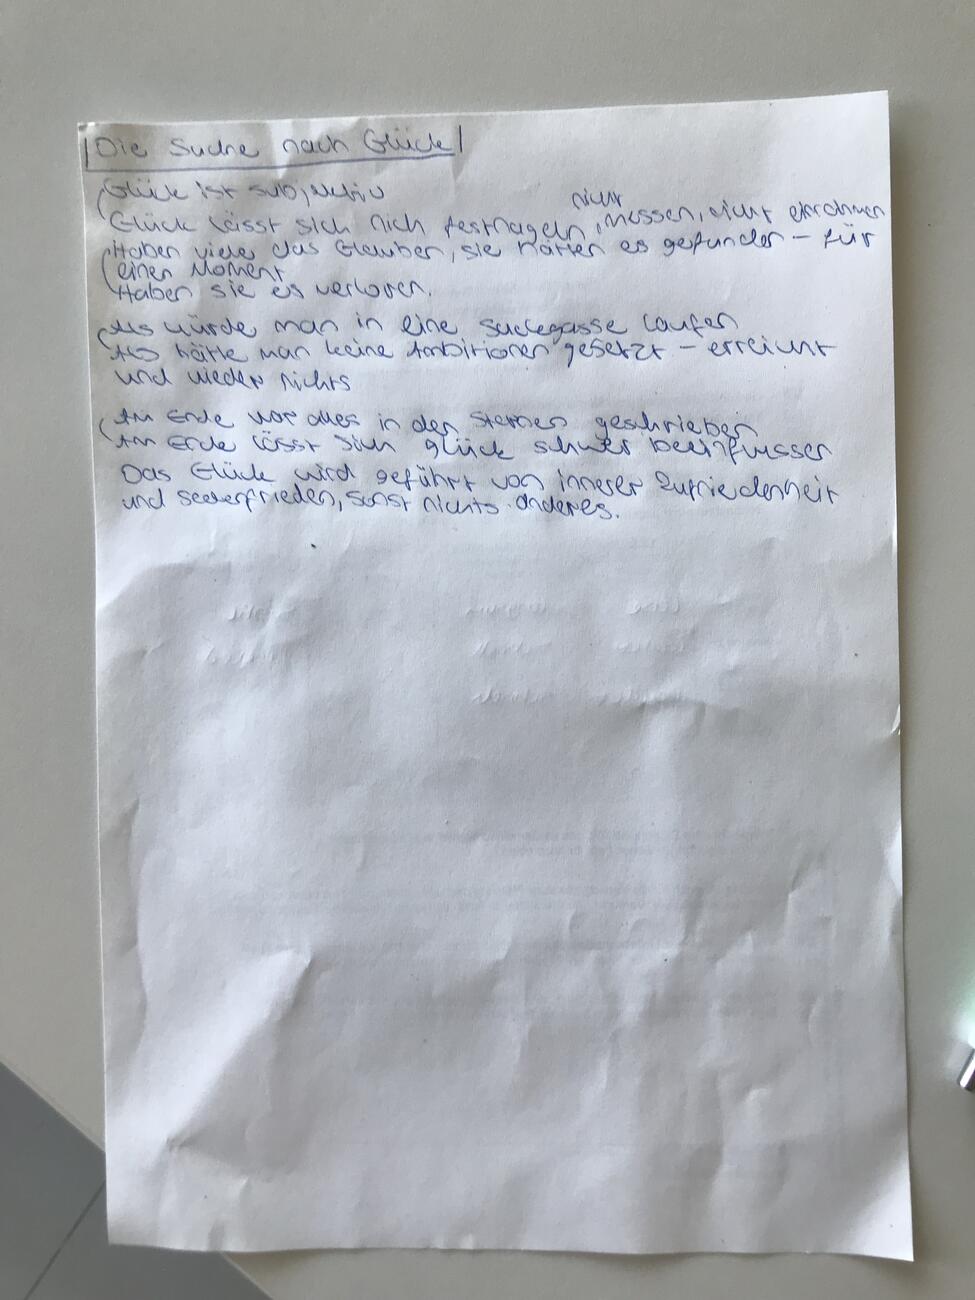 Die Suche nach Glück
Glück ist subjektiv
Glück lässt sich nich festnageln, nicht messen, nicht einrahmen
Haben viele das Glauben, sie hätten es gefunden – für
einen Moment
Haben sie es verloren.
Als würde man in eine Sackgasse laufen
Als hätte man keine Ambitionen gesetzt – erreicht
und wieder nichts
Am Ende war alles in den Sternen geschrieben
Am Ende lässt sich glück schwer beeinflussen
Das Glück wird geführt von innerer Zufriedenheit
und seelenfrieden, sonst nichts anderes.